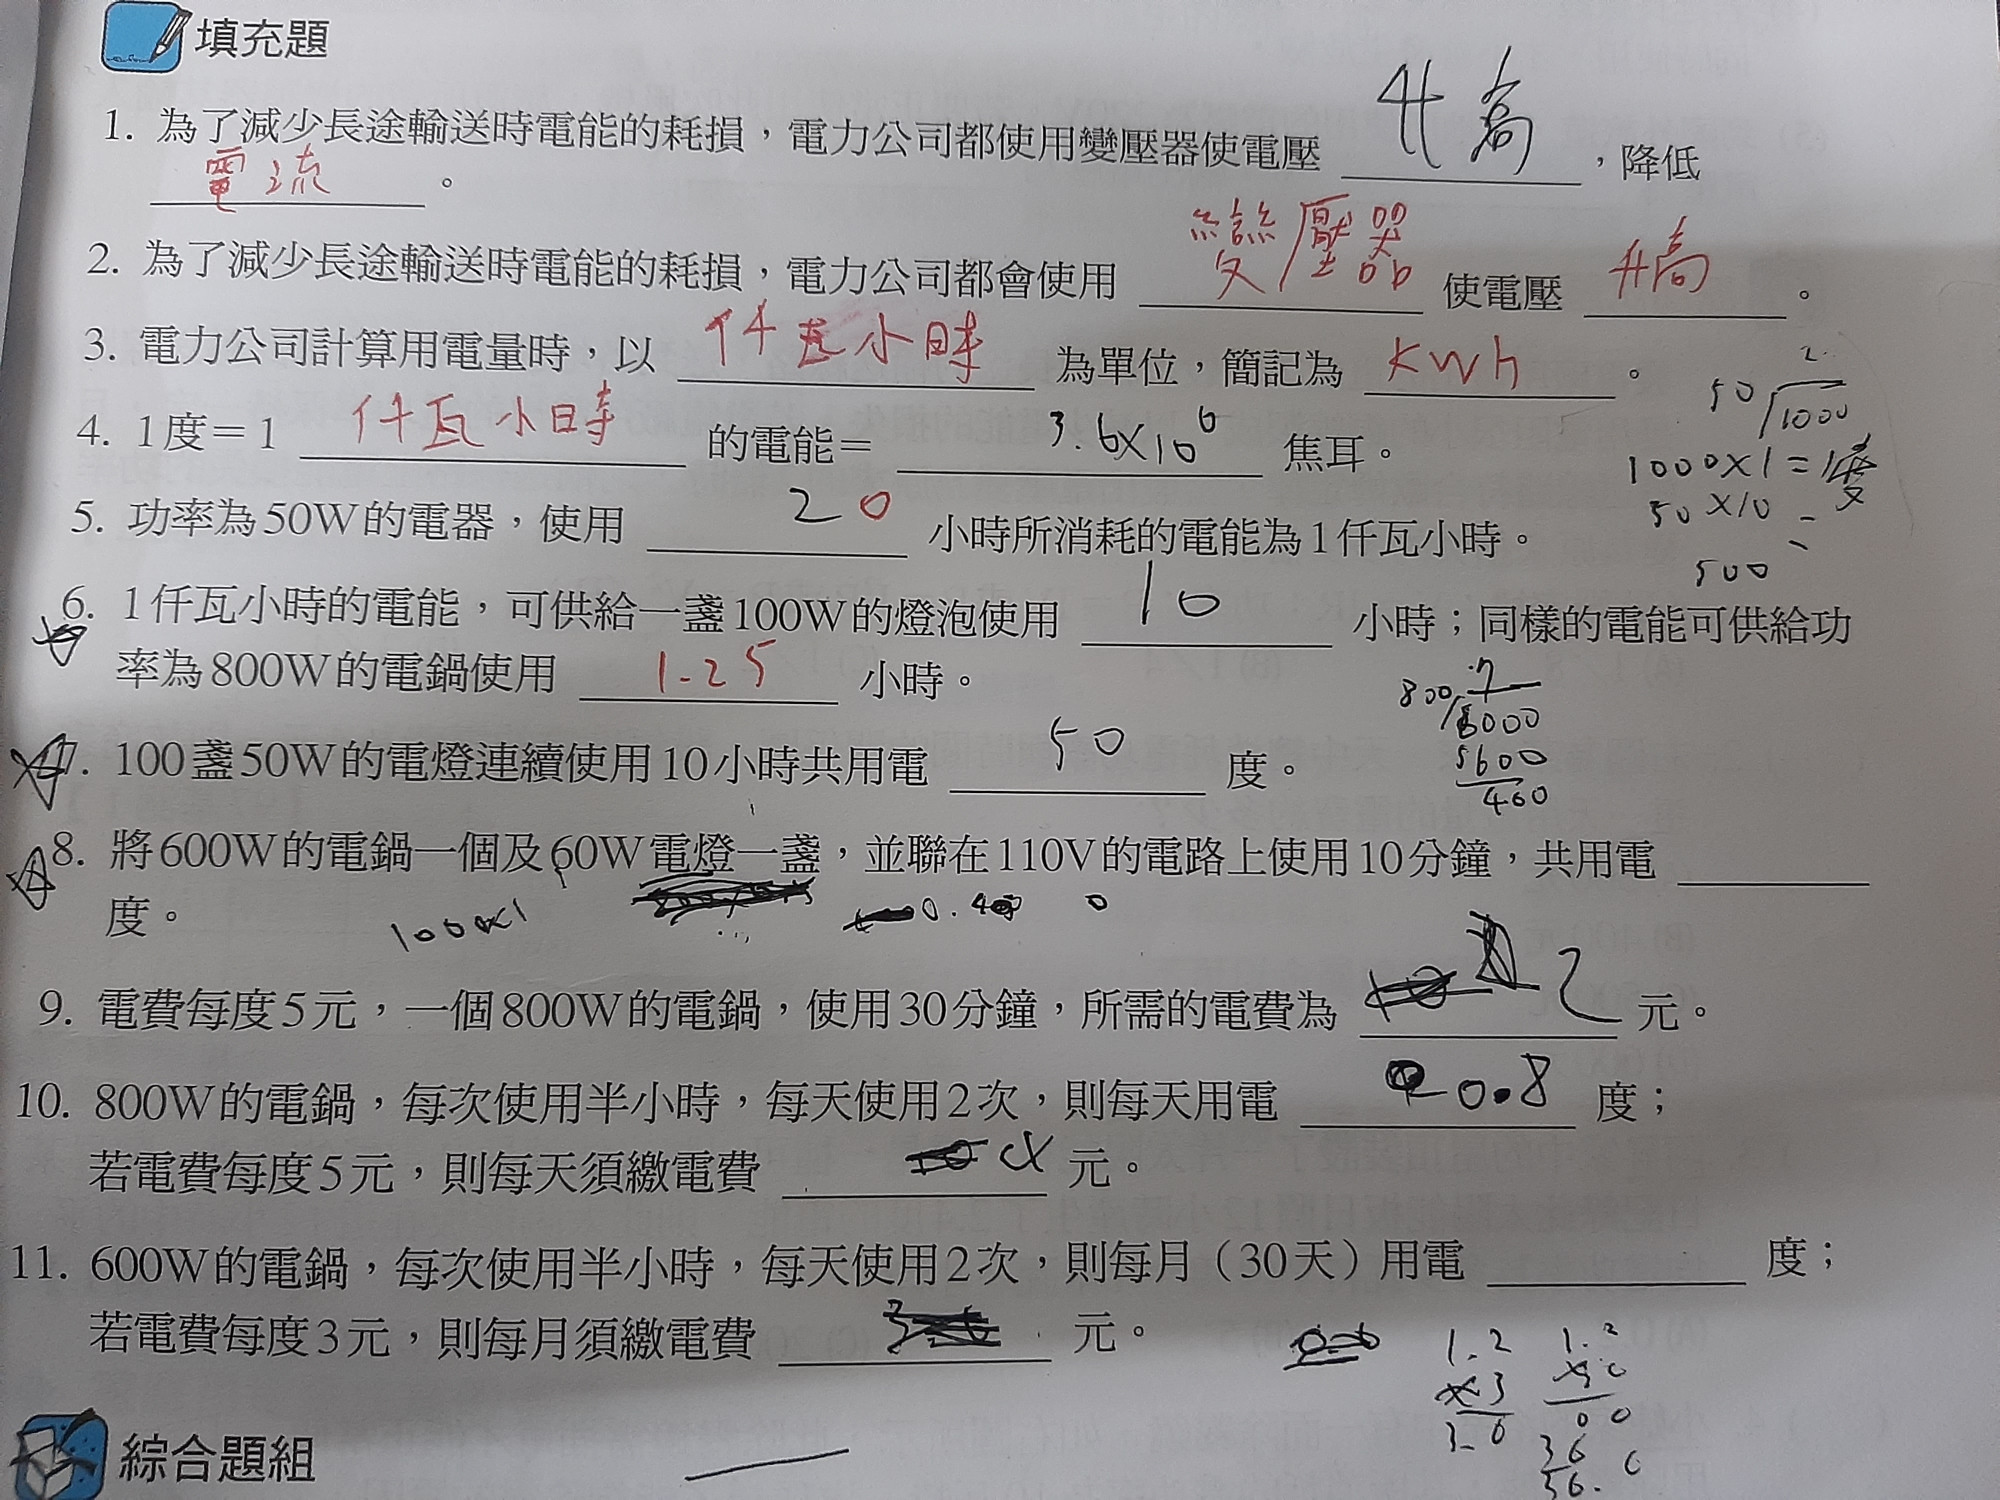 填充題
1. 為了減少長途輸送時電能的耗損，電力公司都使用變壓器使電壓 升高 ，降低
電流 。
2. 為了減少長途輸送時電能的耗損，電力公司都會使用 變壓器 使電壓 升高 。
3. 電力公司計算用電量時，以 仟瓦小時 為單位，簡記為 KWh 。
4. 1度＝1 仟瓦小時 的電能＝ 3.6×10⁶ 焦耳。
2
50 1000
1000×1=1度
5. 功率為50W的電器，使用 20 小時所消耗的電能為1仟瓦小時。
50×10=
500
6. 1仟瓦小時的電能，可供給一盞100W的燈泡使用 10 小時；同樣的電能可供給功
率為800W的電鍋使用 1.25 小時。
7
800 8000
5600
400
7. 100盞50W的電燈連續使用10小時共用電 50 度。
8. 將600W的電鍋一個及60W電燈一盞，並聯在110V的電路上使用10分鐘，共用電
度。
1000×1
9. 電費每度5元，一個800W的電鍋，使用30分鐘，所需的電費為 2 元。
10. 800W的電鍋，每次使用半小時，每天使用2次，則每天用電 0.8 度；
若電費每度5元，則每天須繳電費 元。
11. 600W的電鍋，每次使用半小時，每天使用2次，則每月（30天）用電 度；
若電費每度3元，則每月須繳電費 元。
1.2
×3
3.6
綜合題組